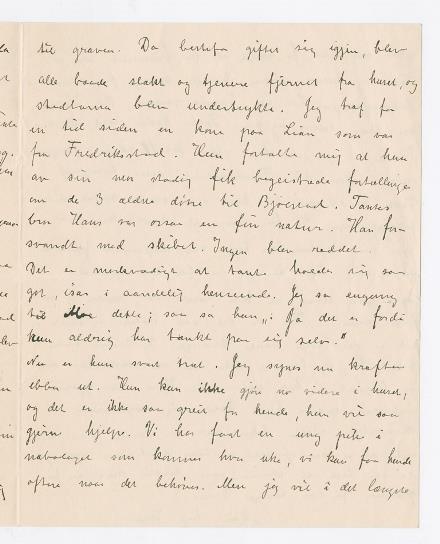 til graven. Da bestefa gifter sig igjen, blev
alle baade slekt og tjenere fjernet fra huset, og
stedbarna blev undertrykte. Jeg traf for
en tid siden en kone paa Lian som var
fra Fredriksstad. Hun fortalte mig at hun
av sin mor stadig fik begeistrede fortællinger
om de 3 ældre døtre til Bjørnstad. Tantes
bror Hans var ogsaa en fin natur. Han for-
svandt med skibet. Ingen blev reddet.
Det er merkværdig at tant holder sig saa
got, især i aandelig henseende. Jeg sa engang
til Moe dette; saa sa han, "Ja det er fordi
hun aldrig har tænkt paa sig selv."
Nu er hun svært træt. Jeg synes nu kræfterne
ebber ut. Hun kan ikke gjøre no videre i huset,
og det er ikke saa greit for hende, hun vil saa
gjerne hjelpe. Vi har faat en ung pike i
nabolaget som kommer hver uke, vi kan faa hende
oftere naar det behøves. Men jeg vil i det længste